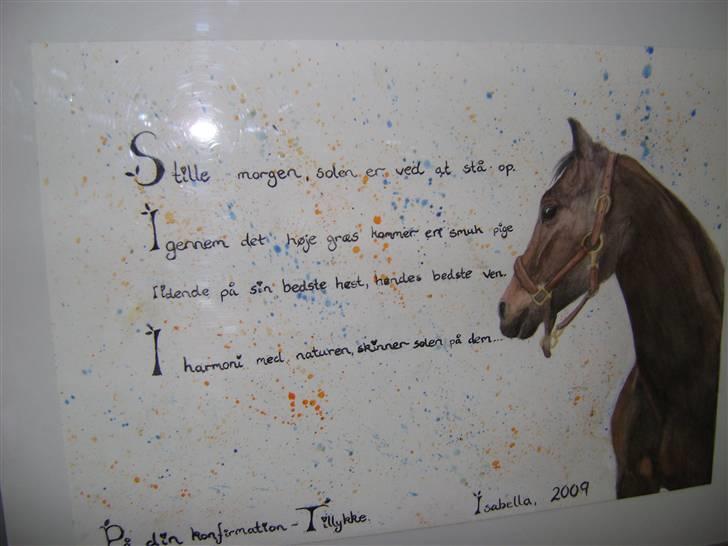 Stille morgen, solen er ved at stå op.
Igennem det høje græs kommer en smuk pige
ridende på sin bedste hest, hendes bedste ven.
I harmoni med naturen, skinner solen på dem...
På din konfirmation - Tillykke.
Isabella, 2009